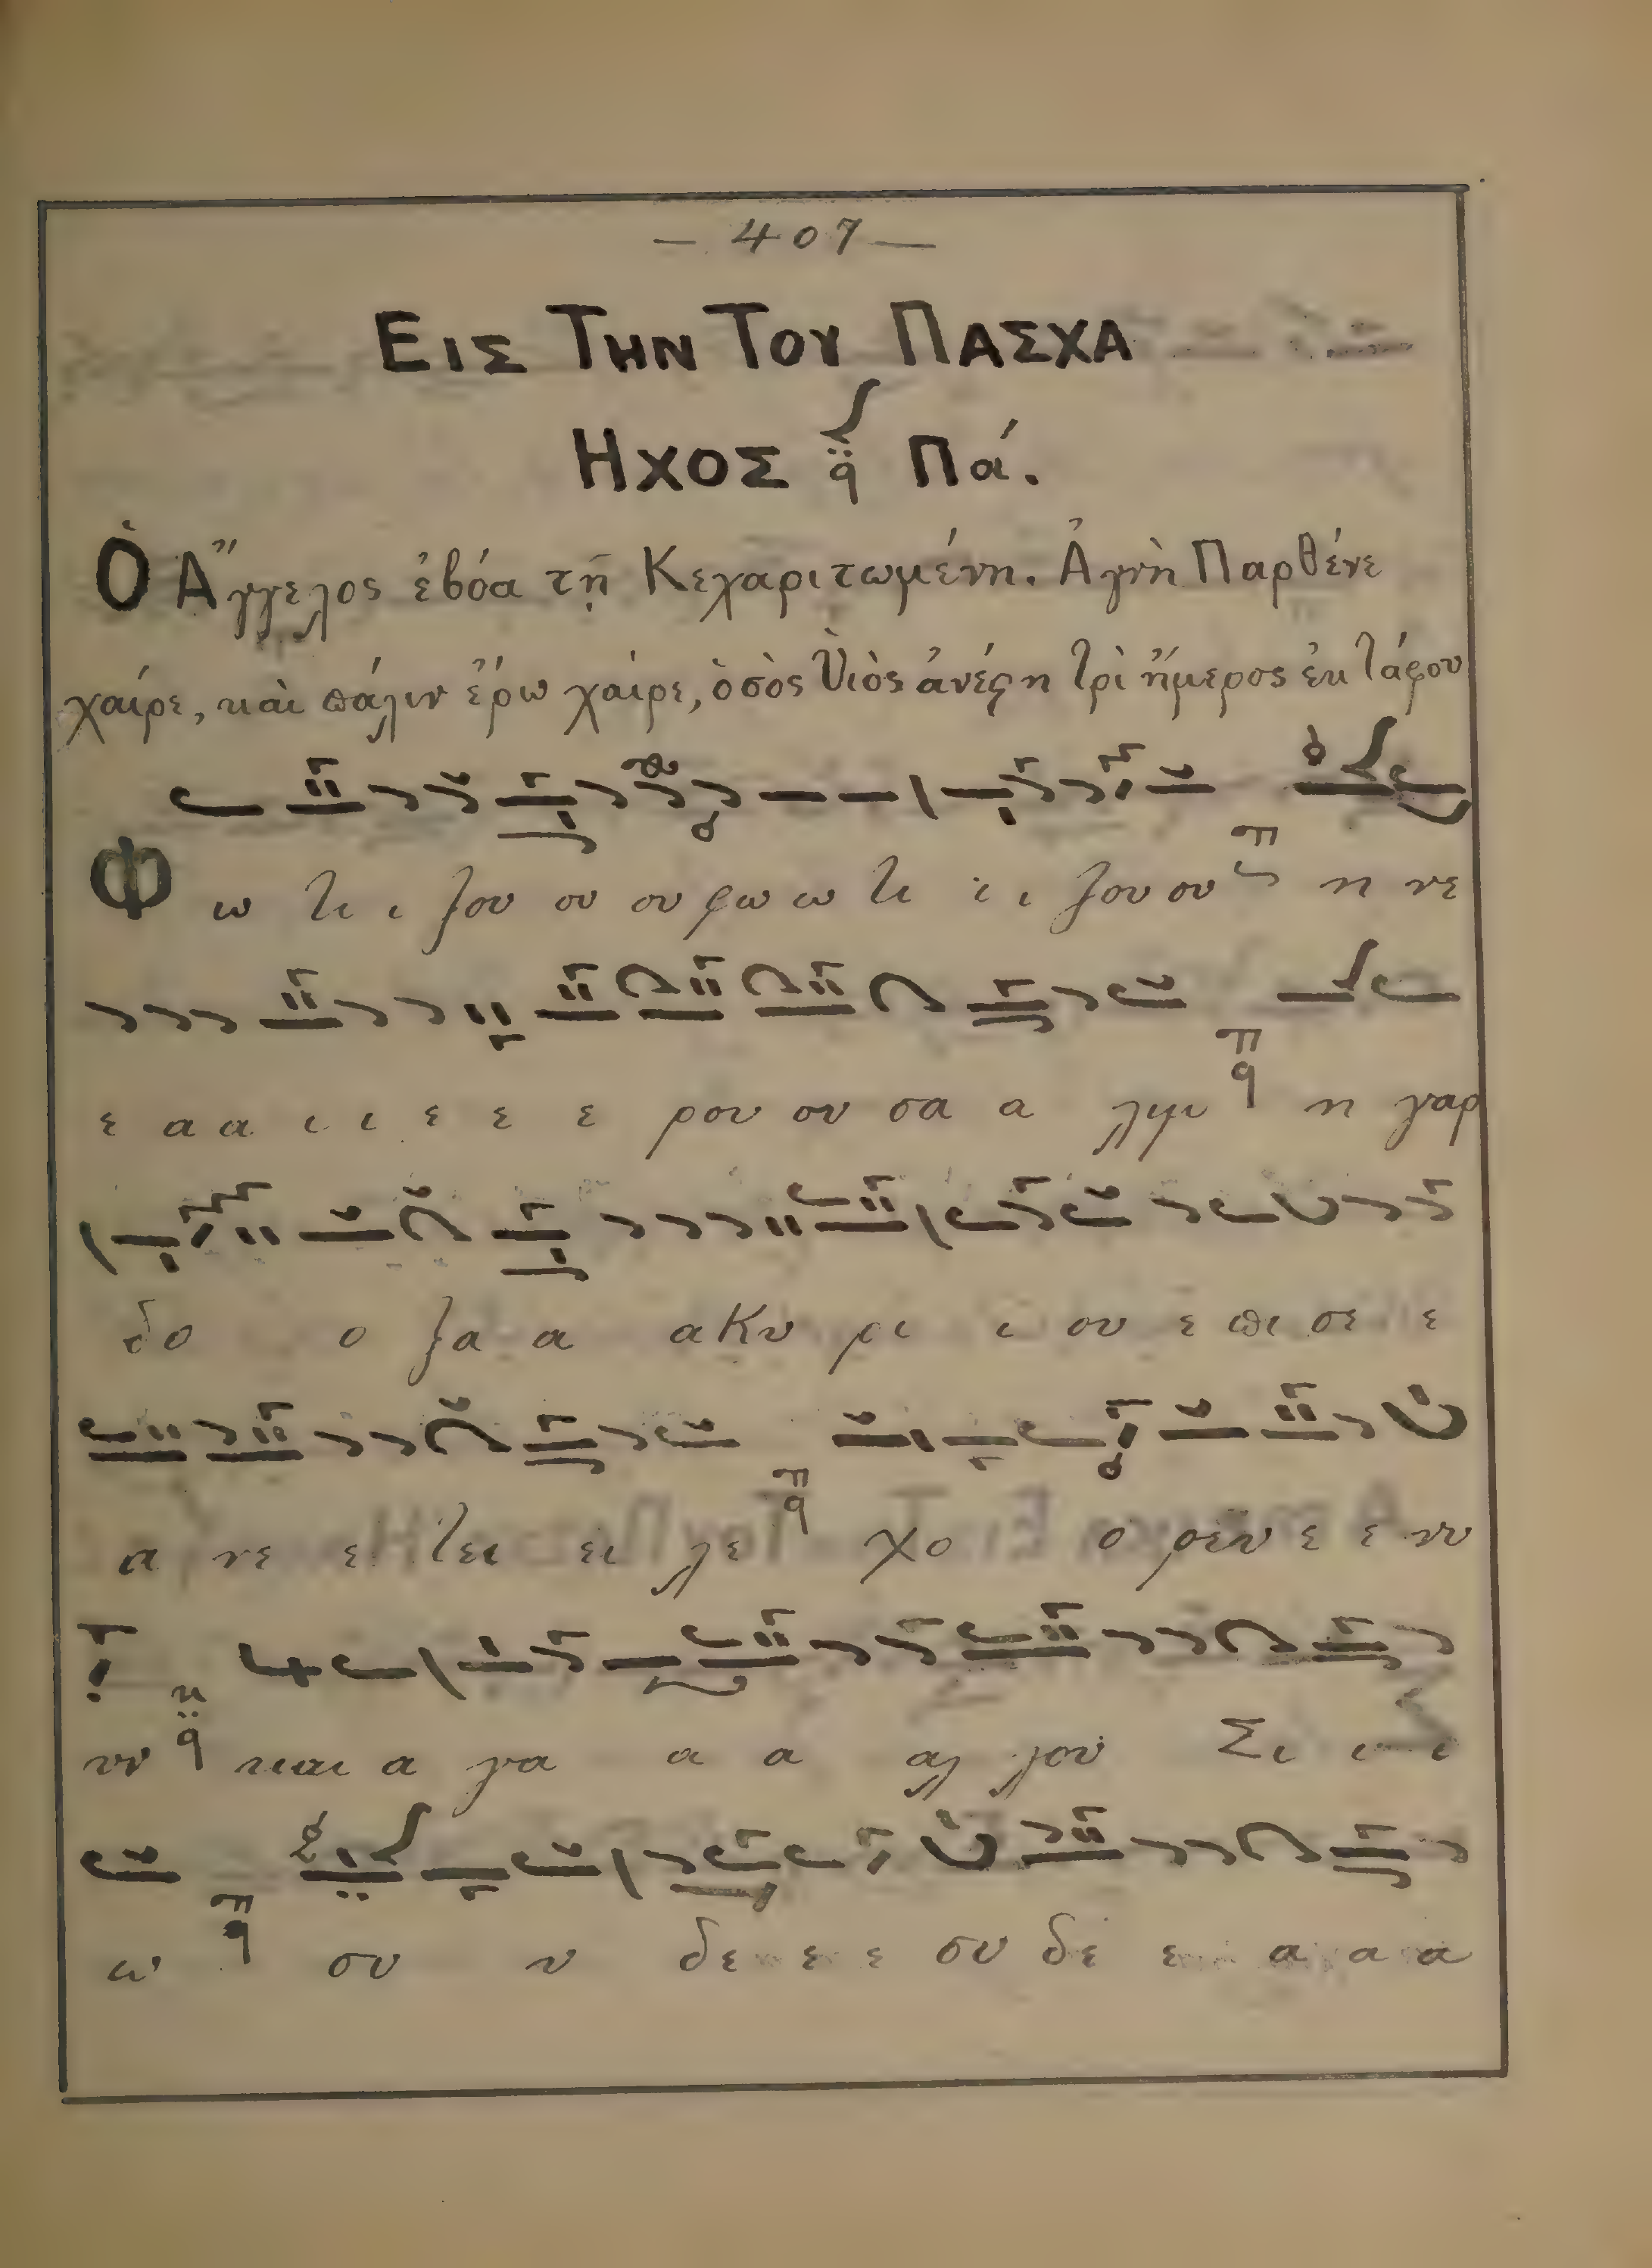 — 407 —
ΕΙΣ ΤΗΝ ΤΟΥ ΠΑΣΧΑ
ΗΧΟΣ Πά.
Ὁ Ἄγγελος ἐβόα τῇ Κεχαριτωμένη. Ἁγνὴ Παρθένε
χαίρε, καὶ πάλιν ἐρῶ χαίρε, ὁ σὸς Υἱὸς ἀνέςη τρὶ ἥμερος ἐκ τάφου
Φ ω τι ι ζου ου ου φω ω τι ι ι ζου ου η νε
ε α α ι ι ε ε ε ρου ου σα α λημ η γαρ
δο ο ξα α α Κυ ρι ι ου ε πι σε ε
α νε ε τει ει λε χο ο ρευ ε ε νυ
υν και α γα α α αλ λου Σι ι ι
ω συ υ δε ε ε συ δε ε α α α